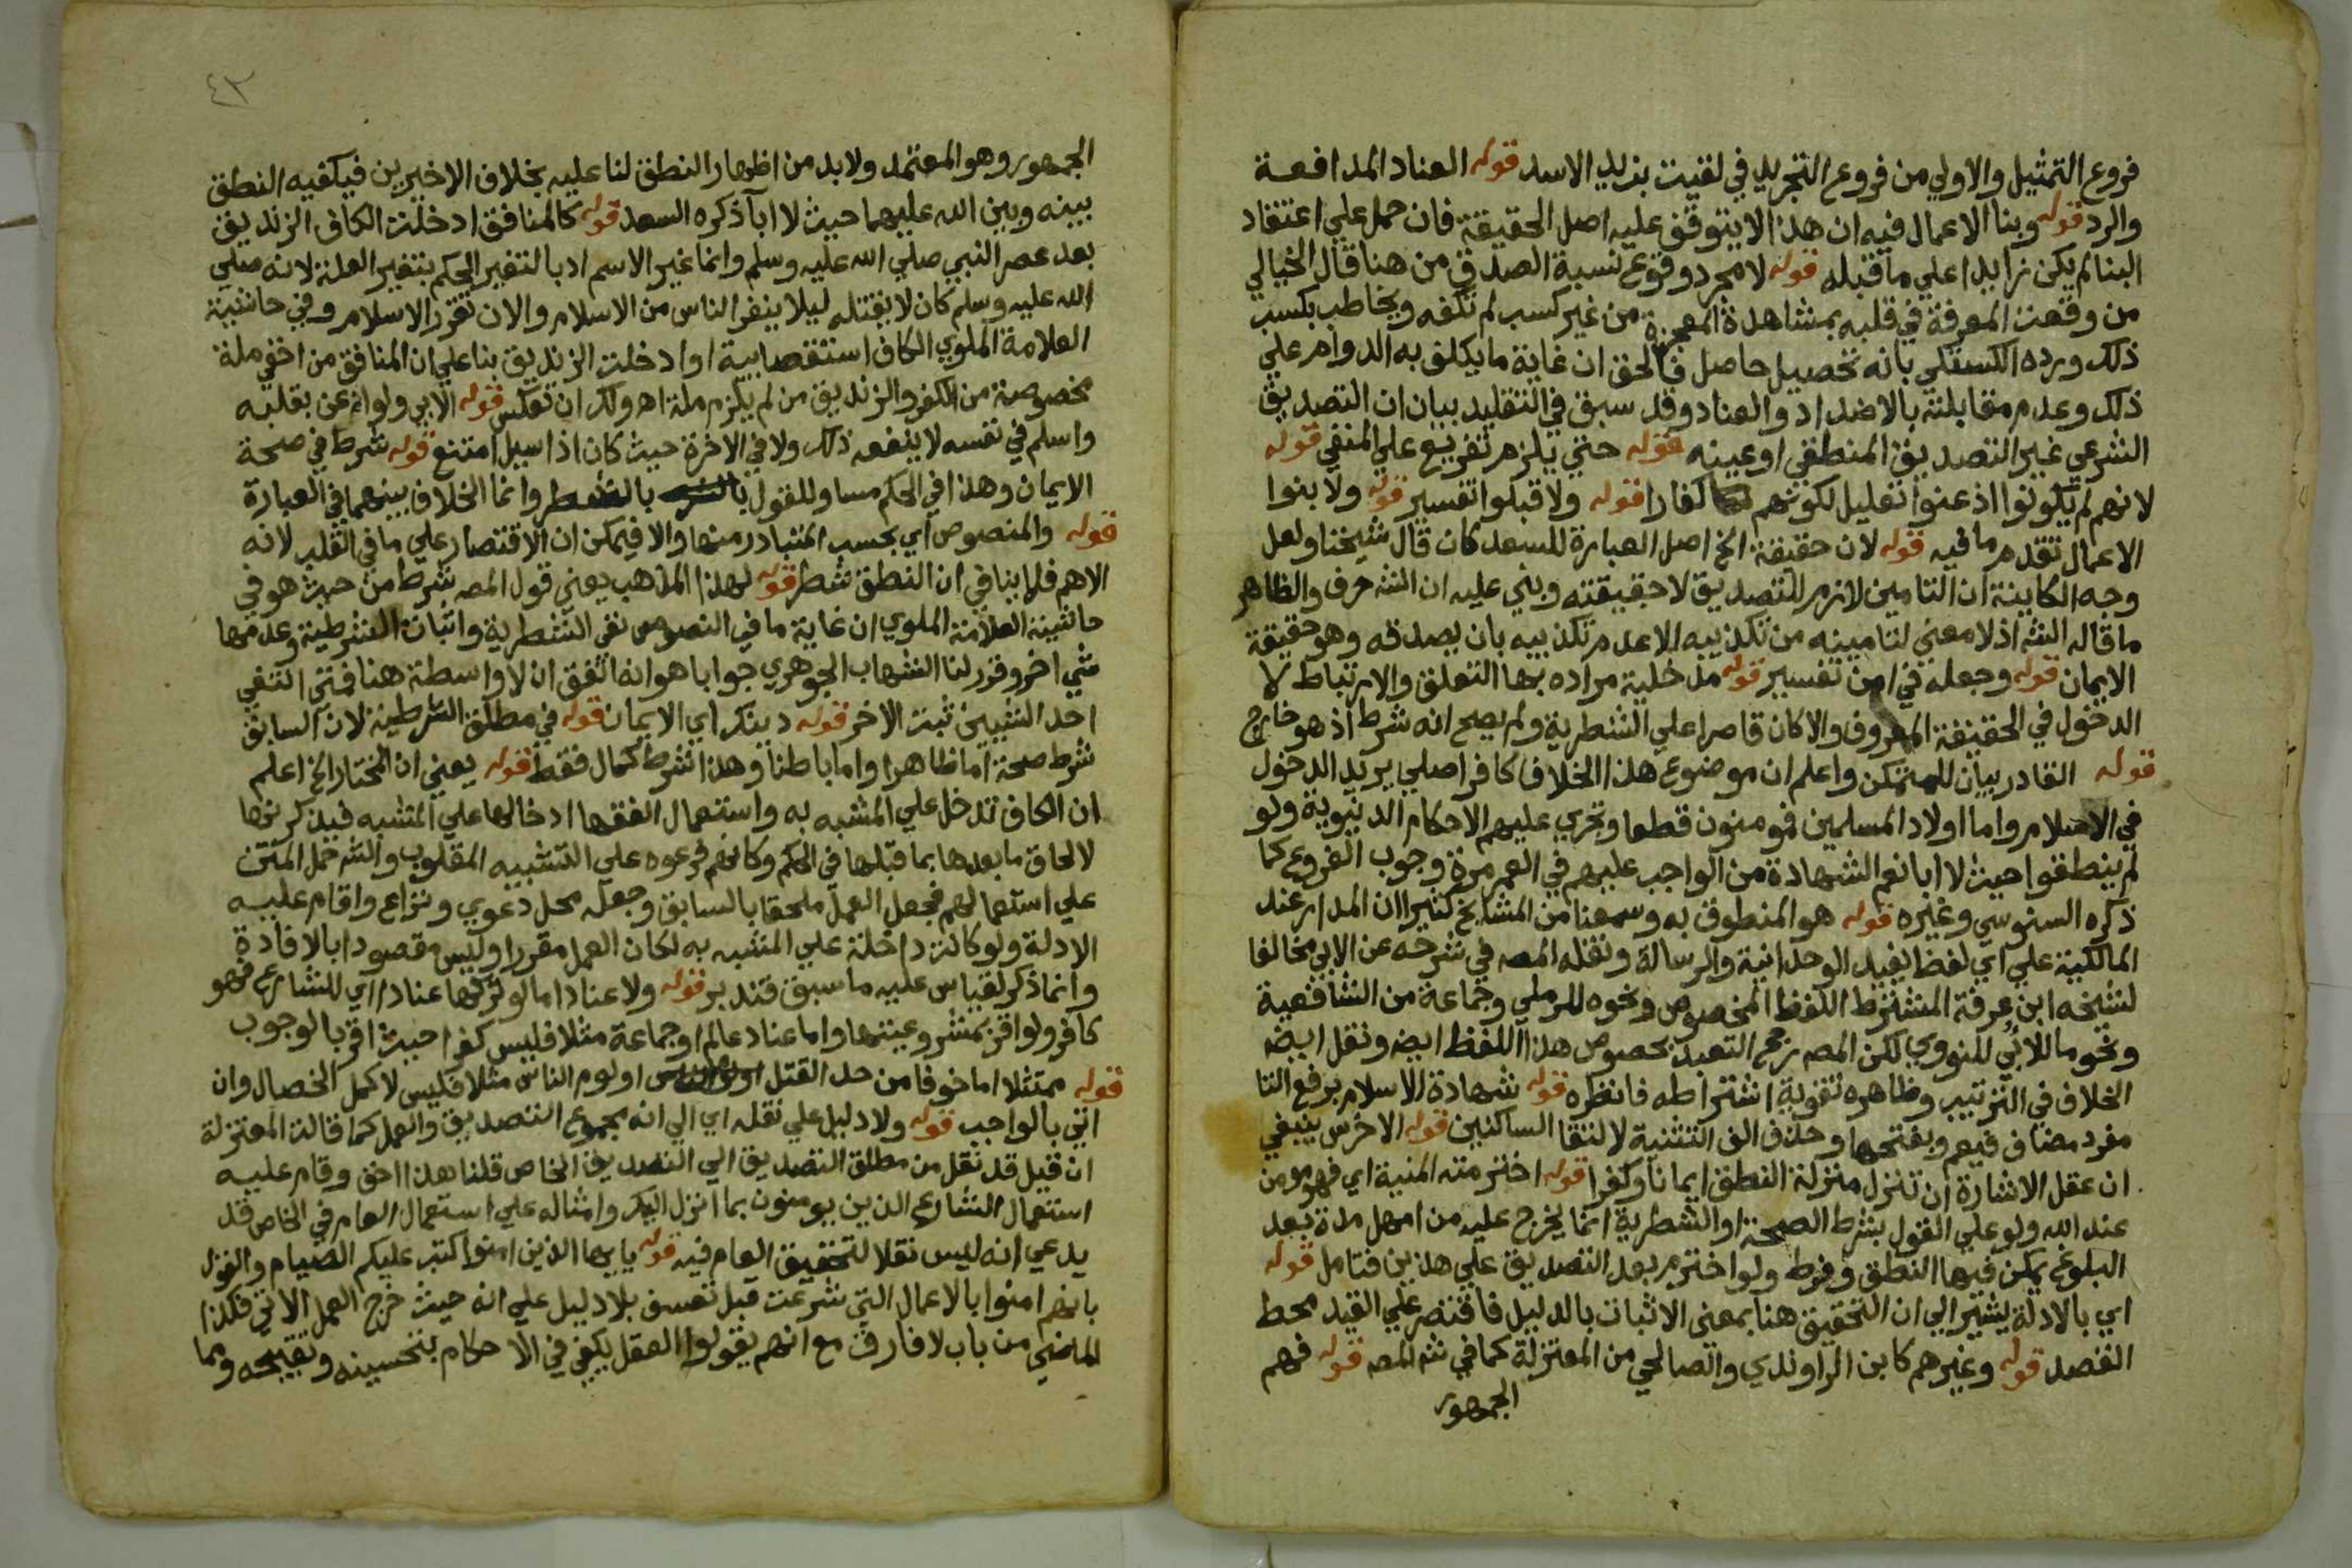 فروع التمثيل والاولي من فروع التجريد في لقيت بزيد الاسد قوله العناد المدافعة
والرد قوله وبنا الاعمال فيه ان هذا لا يتوقف عليه اصل الحقيقة فان حمل علي اعتقاد
البنا لم يكن زايدا علي ما قبله قوله لا مجرد وقوع نسبة الصدق من هنا قال الخيالي
من وقعت المعرفة في قلبه بمشاهدة المعجزة من غير كسب لم تكفه ويخاطب بكسب
ذلك ورده الكستلي بانه تحصيل حاصل فالحق ان غاية ما يكلف به الدوام علي
ذلك وعدم مقابلته بالاضداد والعناد وقد سبق في التقليد بيان ان التصديق
الشرعي غير التصديق المنطقي او عينه قوله حتي يلزم تفريع علي المنفي قوله
لانهم لم يكونوا اذعنوا تعليل لكونهم كفارا قوله ولا قبلوا تفسير قوله ولا بنوا
الاعمال تقدم ما فيه قوله لان حقيقة الخ اصل العبارة للسعد كان قال شيخنا ولعل
وجه الكاينة ان التامين لازم للتصديق لا حقيقته وبني عليه ان الشـ حرف والظاهر
ما قاله الشـ اذ لا معني لتامينه من تكذيبه الا عدم تكذيبه بان يصدقه وهو حقيقة
الايمان قوله وجعله في امن تفسير قوله مدخلية مراده بها التعلق والارتباط لا
الدخول في الحقيقة المعروف والا كان قاصرا علي الشطرية ولم يصح انه شرط اذ هو خارج
قوله القادر بيان للمتمكن واعلم ان موضوع هذا الخلاف كافر اصلي يريد الدخول
في الاسلام واما اولاد المسلمين فمومنون قطعا وتجري عليهم الاحكام الدنيوية ولو
لم ينطقوا حيث لا ابا نعم الشهادة من الواجب عليهم في العمر مرة وجوب الفروع كما
ذكره السنوسي وغيره قوله هو المنطوق به وسمعنا من المشايخ كثيرا ان المدار عند
المالكية علي اي لفظ يفيد الوحدانية والرسالة ونقله المصـ في شرحه عن الابي مخالفا
لشيخه ابن عرفة المشترط اللفظ المخصوص ونحوه للرملي وجماعة من الشافعية
ونحو ما للابي للنووي لكن المصـ رجح التعبد بخصوص هذا اللفظ ايضـ ونقل ايضـ
الخلاف في الترتيب وظاهره تقوية اشتراطه فانظره قوله شهادة الاسلام برفع التا
مفرد مضاف فيعم وبفتحها وحذف الف التثنية لالتقا الساكنين قوله الاخرس ينبغي
ان عقل الاشارة ان تنزل منزلة النطق ايمانا وكفرا قوله اخترمته المنية اي فهو مومن
عند الله ولو علي القول بشرط الصحة او الشطرية انما يخرج عليه من امهل مدة بعد
البلوغ يمكن فيها النطق وفرط ولو اخترم بعد التصديق علي هذين فتامل قوله
اي بالادلة يشير الي ان التحقيق هنا بمعني الاثبات بالدليل فاقتصر علي القيد محط
القصد قوله وغيرهم كابن الراوندي والصالحي من المعتزلة كما في شـ المصـ قوله فهم
الجمهور
٤٣
الجمهور وهو المعتمد ولابد من اظهار النطق لنا عليه بخلاف الاخيرين فيكفيه النطق
بينه وبين الله عليهما حيث لا ابا ذكره السعد قوله كالمنافق ادخلت الكاف الزنديق
بعد عصر النبي صلي الله عليه وسلم وانما غير الاسم ادبا لتغير الحكم بتغير العلة لانه صلي
الله عليه وسلم كان لا يقتله ليلا ينفر الناس من الاسلام والان تقرر الاسلام وفي حاشية
العلامة الملوي الكاف استقصايية او ادخلت الزنديق بنا علي ان المنافق من اخفي ملة
مخصوصة من الكفر والزنديق من لم يلزم ملة اهـ ولك ان تعكس قوله الابي ولو اذعن بقلبه
واسلم في نفسه لا ينفعه ذلك ولا في الاخرة حيث كان اذا سيل امتنع قوله شرط في صحة
الايمان وهذا في الحكم مساو للقول بالشطر وانما الخلاف بينهما في العبارة
قوله والمنصوص اي بحسب المتبادر منها والا فيمكن ان الاقتصار علي ما في القلب لانه
الاهم فلا ينافي ان النطق شطر قوله لهذا المذهب يعني قول المصـ شرط من حيث هو في
حاشية العلامة الملوي ان غاية ما في النصوص نفي الشطرية واثبات الشرطية وعدمها
شي اخر وقرر لنا الشهاب الجوهري جوابا هو انه اتفق ان لا واسطة هنا فمتي انتفي
احد الشيين ثبت الاخر قوله دينك اي الايمان قوله في مطلق الشرطية لان السابق
شرط صحة اما ظاهرا واما باطنا وهذا شرط كمال فقط قوله يعني ان المختار الخ اعلم
ان الكاف تدخل علي المشبه به واستعمال الفقها ادخالها علي المشبه فيذكرونها
لالحاق ما بعدها بما قبلها في الحكم وكانهم فرعوه علي التشبيه المقلوب والشـ حمل المتن
علي استعمالهم فجعل العمل ملحقا بالسابق وجعله محل دعوي ونزاع واقام عليه
الادلة ولو كانت داخلة علي المشبه به لكان العمل مقررا وليس مقصودا بالافادة
وانما ذكر لقياس عليه ما سبق فتدبر قوله ولا عناد اما لو تركها عنادا اي للشارع فهو
كافر ولو اقر بمشروعيتها واما عناد عالم او جماعة مثلا فليس كفرا حيث اقر بالوجوب
قوله ممتثلا اما خوفا من حد القتل او لوم الناس مثلا فليس لاكمل الخصال وان
اتي بالواجب قوله ولا دليل علي نقله اي الي انه مجموع التصديق والعمل كما قالت المعتزلة
ان قيل قد نقل من مطلق التصديق الي التصديق الخاص قلنا هذا احق وقام عليه
استعمال الشارع الذين يومنون بما انزل اليك وامثاله علي استعمال العام في الخاص قد
يدعي انه ليس نقلا لتحقيق العام فيه قوله يايها الذين امنوا كتب عليكم الصيام والقول
بانهم امنوا بالاعمال التي شرعت قبل تعسف بلا دليل علي انه حيث خرج العمل الاتي فكذا
الماضي من باب لا فارق مع انهم يقولوا العقل يكفي في الاحكام بتحسينه وتقبيحه ومما